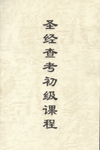 圣经查考初级课程